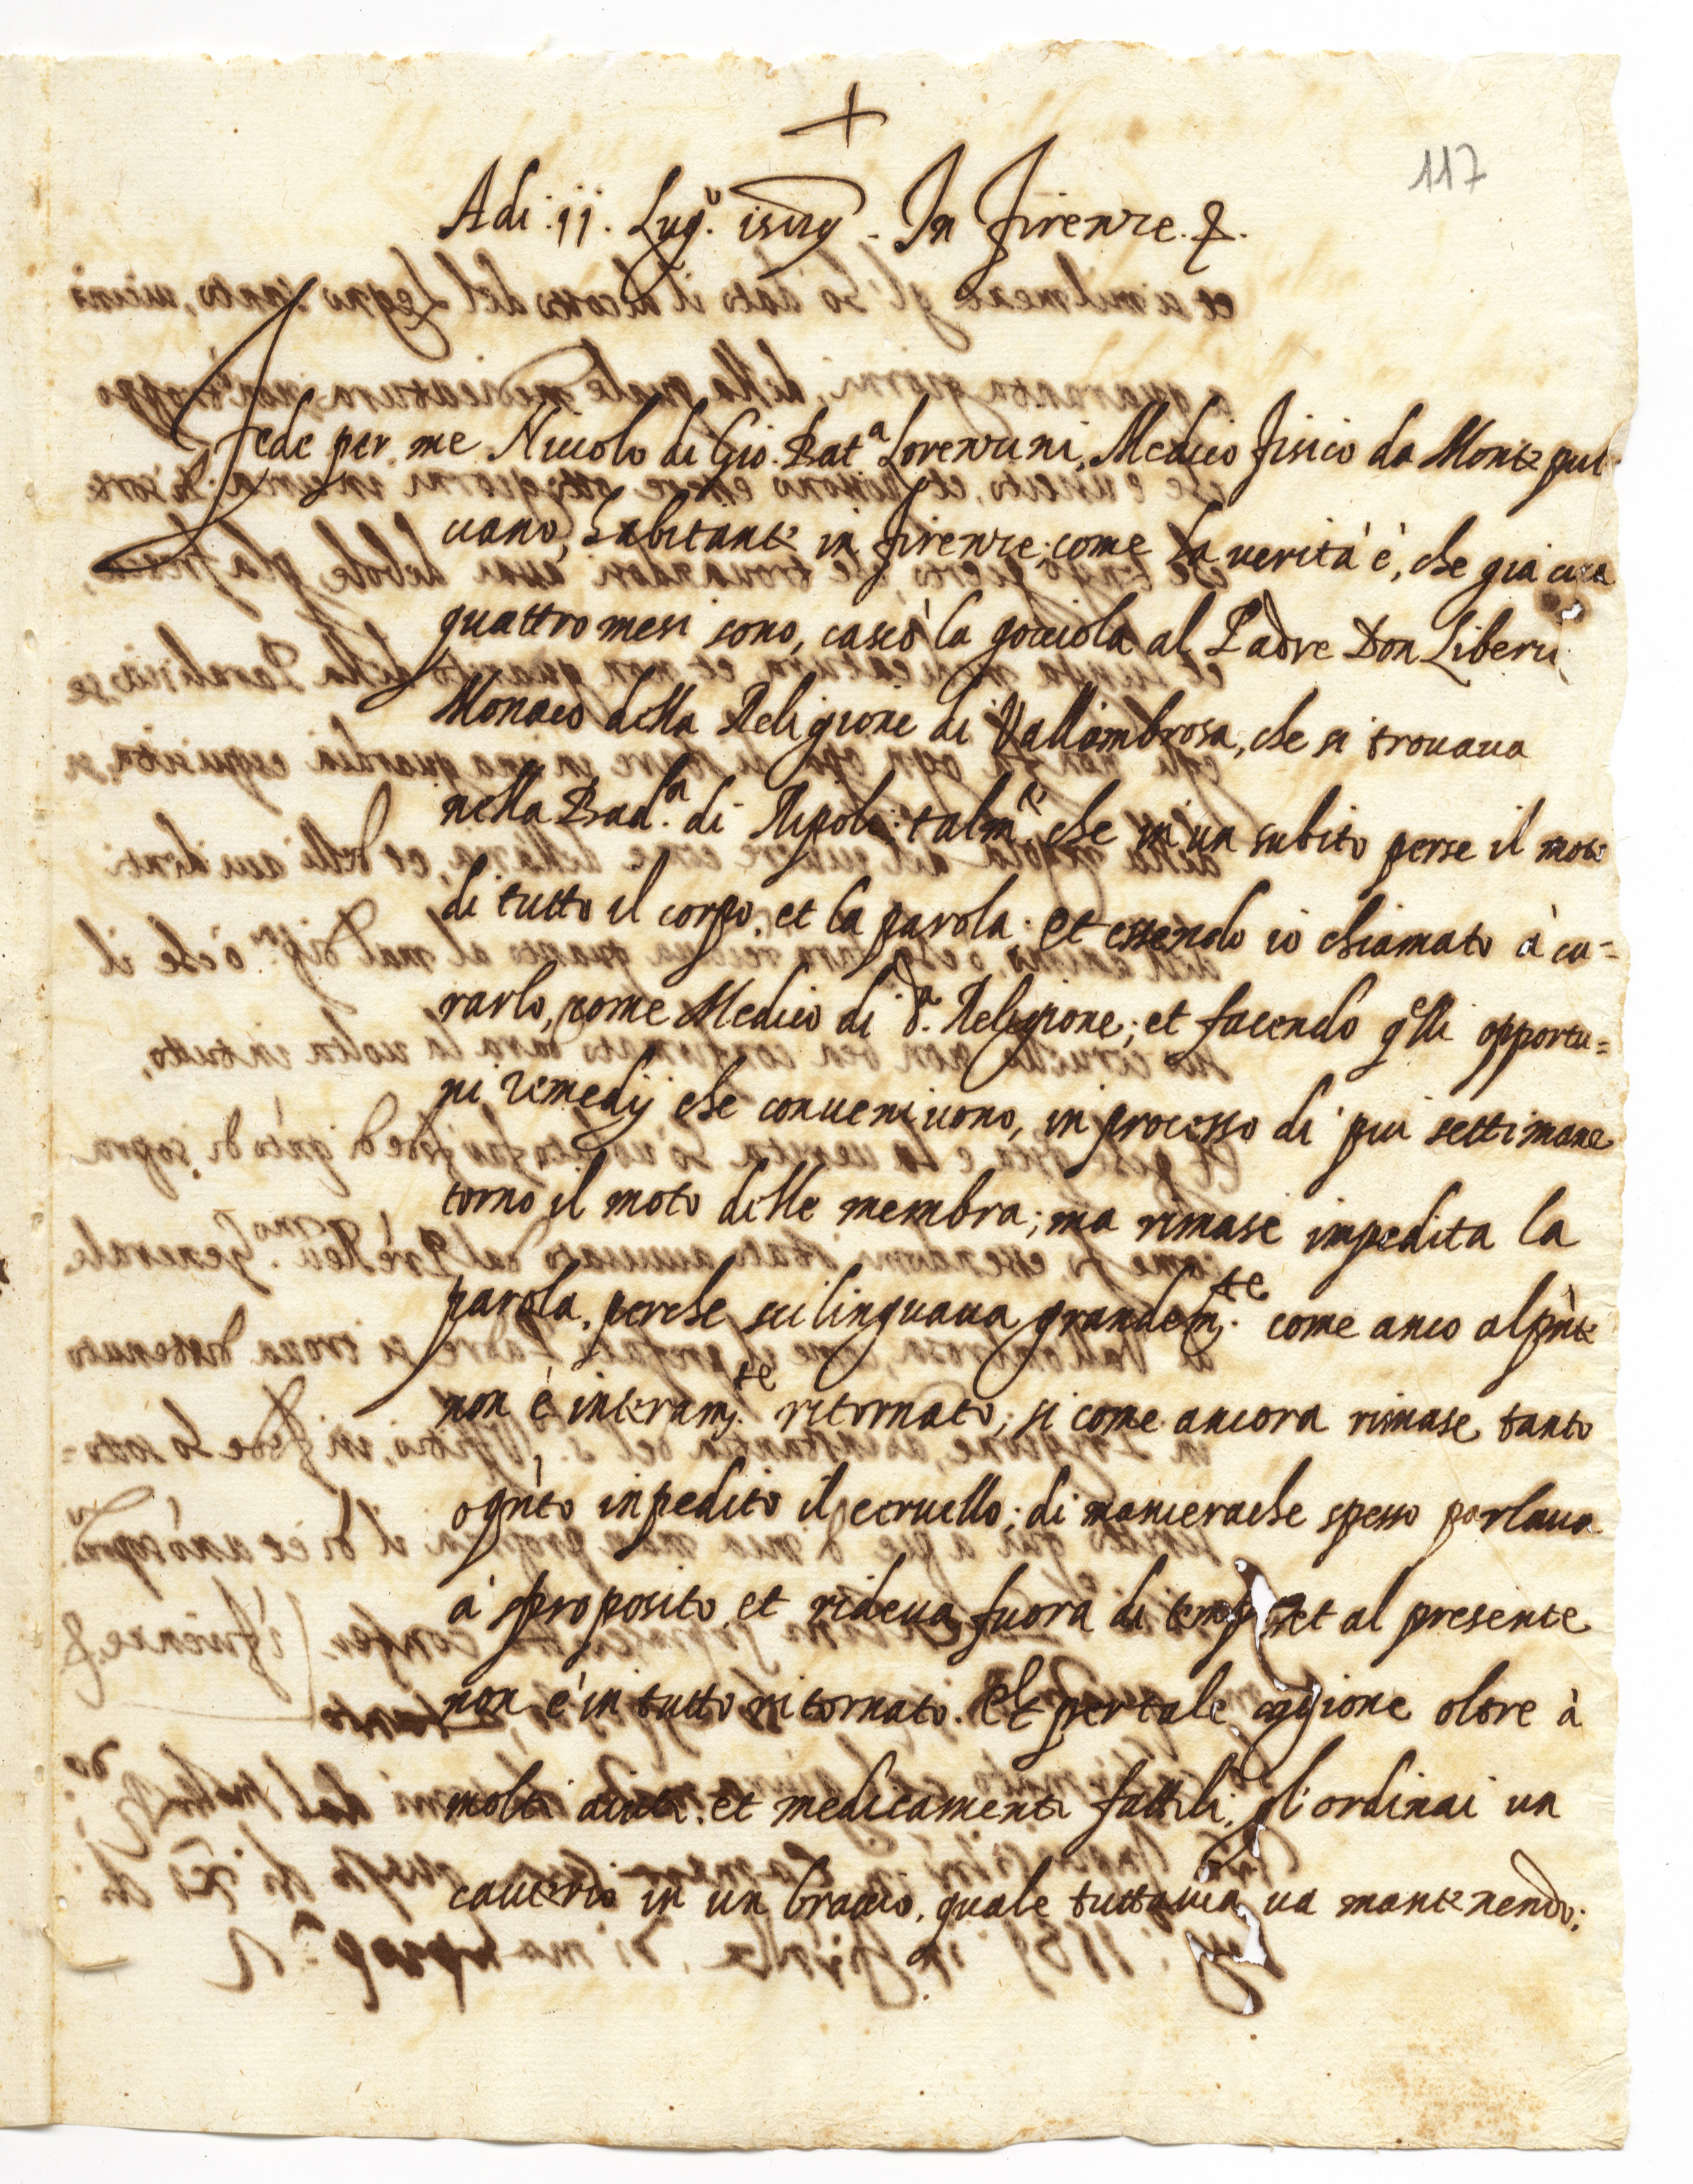 +
117
Adi .11. Lug.o In Firenze.
Fede per me Niccolo di Gio. Bat.a Lorenzini, Medico fisico da Monte pul
ciano, habitante in firenze; come la verità è, che gia circa
quattro mesi sono, cascò la gocciola al Padre Don Liberio
Monaco della Religione di Vallombrosa, che si trovava
nella Bad.a di Ripoli: talm.te che in un subito perse il moto
di tutto il corpo, et la parola: et essendo io chiamato à cu=
rarlo, come Medico di d.a Religione; et facendo q̃lli opportu=
ni remedij che convenivono, in processo di piu settimane
torno il moto delle membra; ma rimase impedita la
parola, perche scilinguava grandem.te come anco al pñte
non è interam.te ritornato; si come ancora rimase tanto
inpedito il cervello; di manierache spesso parlava
à sproposito, et rideva fuora di tempo, et al presente
non è in tutto ritornato. Et per tale cagione oltre à
molti aiuti, et medicamenti fattili, gl'ordinai un
cauterio in un braccio, quale tuttavia va mantenendo;